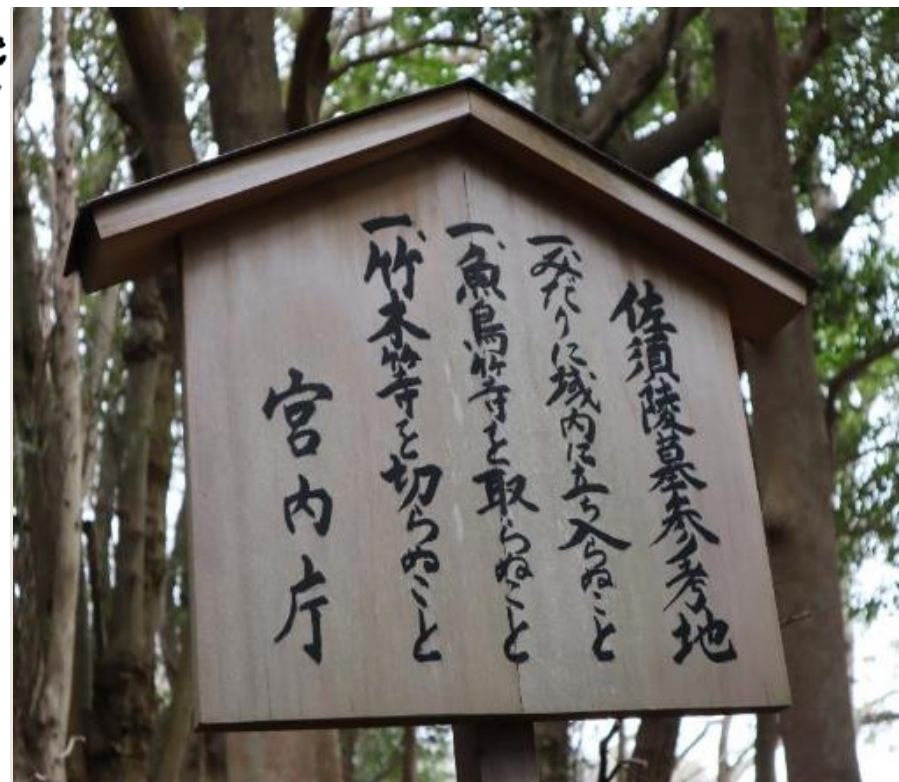 佐須陵墓参考地
一、みだりに域内に立ち入らぬこと
一、魚鳥等を取らぬこと
一、竹木等を切らぬこと
宮内庁